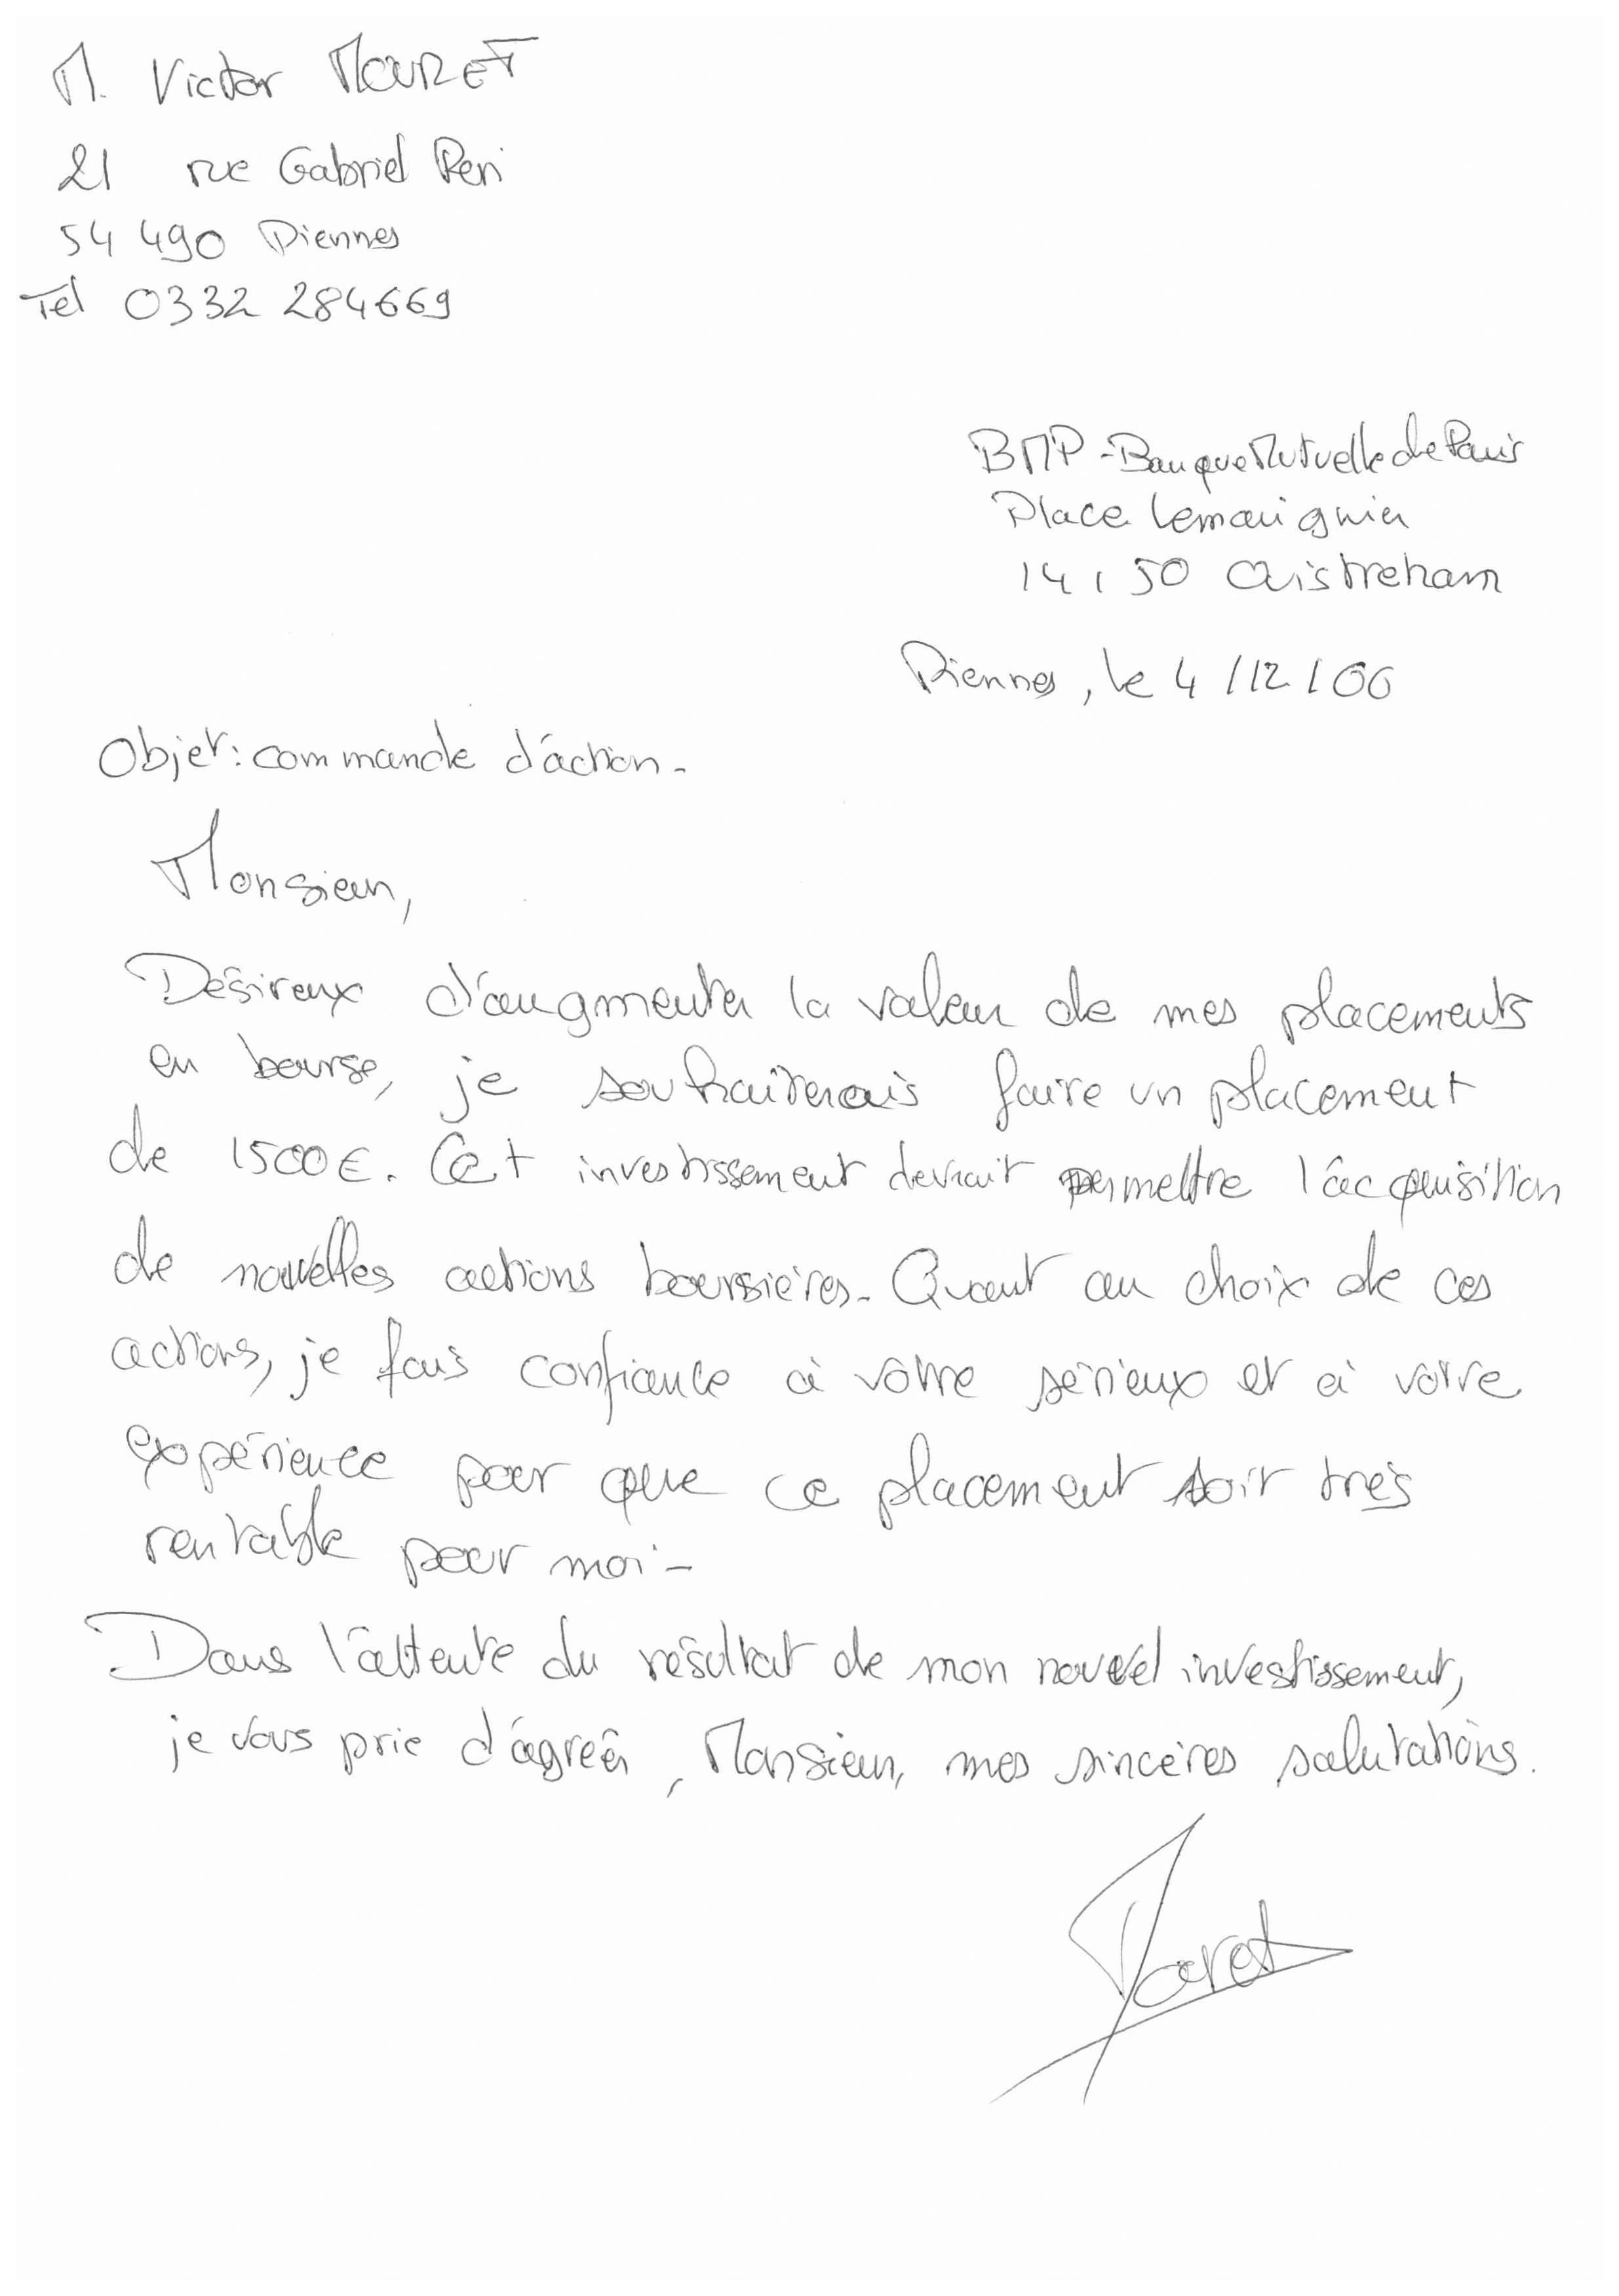 M. Victor MOURET
21 rue Gabriel Peri
54 490 Piennes
Tel 0332 284669
BMP - Banque Mutuelle de Paris
Place Lemarignier
14150 Ouistreham
Piennes, le 4/12/06
Objet : commande d'action.
Monsieur,
Désireux d'augmenter la valeur de mes placements
en bourse, je souhaiterais faire un placement
de 1500€. Cet investissement devrait permettre l'acquisition
de nouvelles actions boursières. Quant au choix de ces
actions, je fais confiance à votre sérieux et à votre
expérience pour que ce placement soit très
rentable pour moi -
Dans l'attente du résultat de mon nouvel investissement,
je vous prie d'agréer, Monsieur, mes sincères salutations.